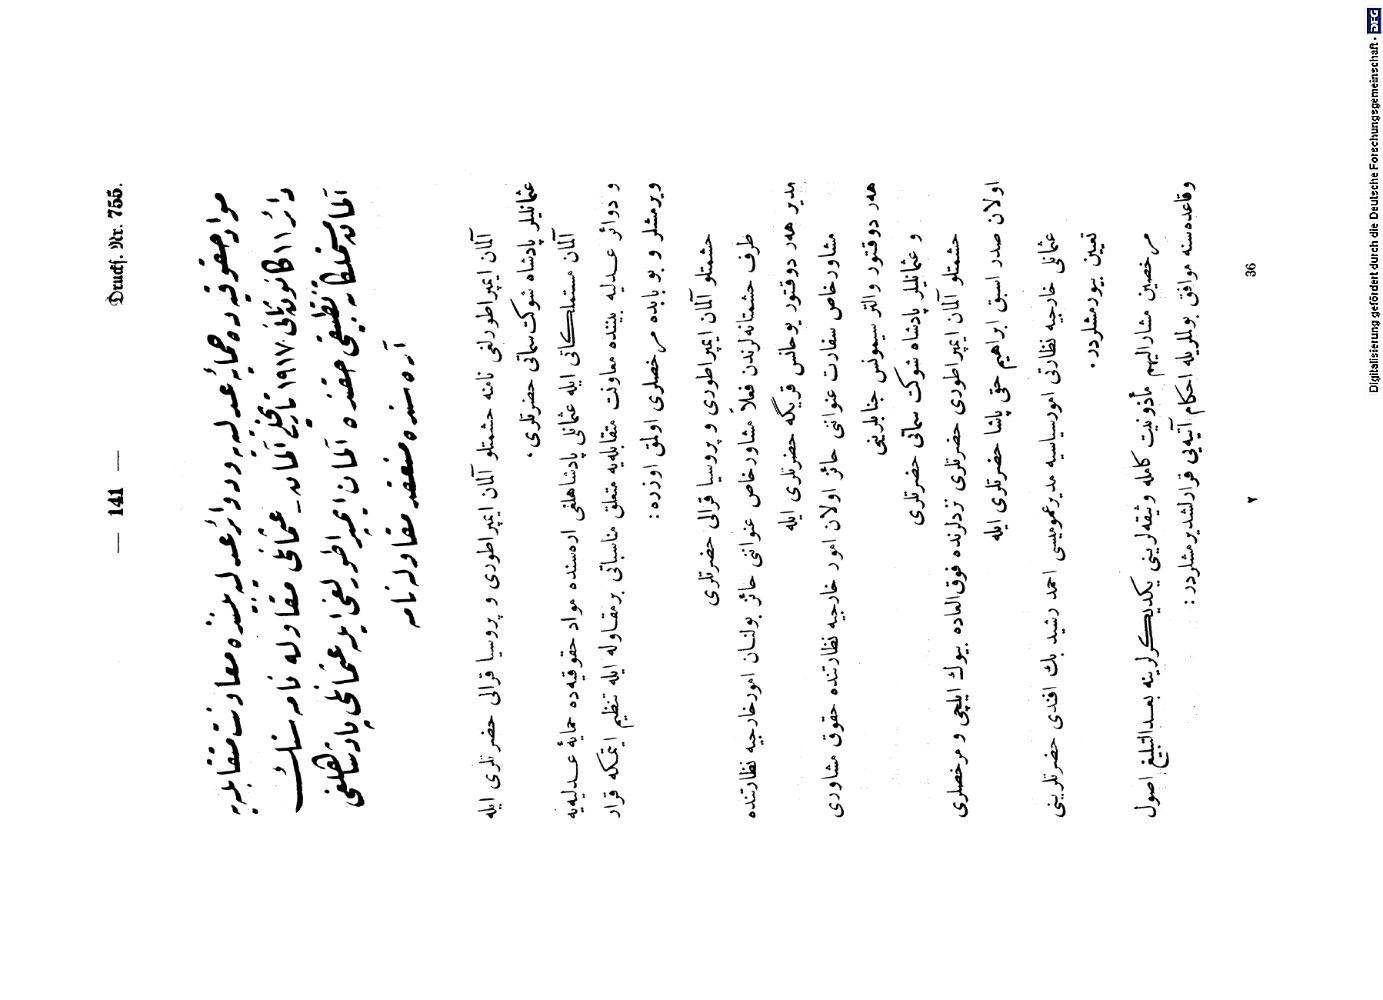 — 141 —
Drucks. Nr. 755.
مواد حقوقیه ده حمایۀ عدلیه و دوائر عدلیه بیننده معاونت متقابله یه
دائر ١١ كانون ثانی ١٩١٧ تاریخلی آلمان ـ عثمانلی مقاوله نامه سنك
آلمان مستملكاتنه تطبیقی حقنده آلمان ایمپراطورلغی ایله عثمانلی پادشاهلغی
آره سنده منعقد مقاوله نامه
آلمان ایمپراطورلغی نامنه حشمتلو آلمان ایمپراطوری و پروسیا قرالی حضرتلری ایله
عثمانلیلر پادشاه شوكت سماتی حضرتلری،
آلمان مستملكاتی ایله عثمانلی پادشاهلغی اره سنده مواد حقوقیه ده حمایۀ عدلیه یه
و دوائر عدلیه بیننده معاونت متقابله یه متعلق مناسباتی بر مقاوله ایله تنظیم ایتمكه قرار
ویرمشلر و بو بابده مرخصلری اولمق اوزره :
حشمتلو آلمان ایمپراطوری و پروسیا قرالی حضرتلری
طرف حشمتانه لرندن فعلاً مشاور خاص عنواننی حائز بولنان امور خارجیه نظارتنده
مدیر هەر دوقتور یوحانس قریگه حضرتلری ایله
مشاور خاص سفارت عنواننی حائز اولان امور خارجیه نظارتنده حقوق مشاوری
هەر دوقتور والتر سیمونس جنابلرینی
و عثمانلیلر پادشاه شوكت سماتی حضرتلری
حشمتلو آلمان ایمپراطوری حضرتلری نزدلرنده فوق العاده بیوك ایلچی و مرخصلری
اولان صدر اسبق ابراهیم حقی پاشا حضرتلری ایله
عثمانلی خارجیه نظارتی امور سیاسیه مدیر عمومیسی احمد رشید بك افندی حضرتلرینی
تعیین بیورمشلردر.
مرخصین مشارالیهم مأذونیت كامله وثیقه لرینی یكدیكرلرینه بعدالتبلیغ اصول
وقاعده سنه موافق بولنلریله احكام آتیه یی قرارلشدیرمشلردر :
٢
36
Digitalisierung gefördert durch die Deutsche Forschungsgemeinschaft - DFG